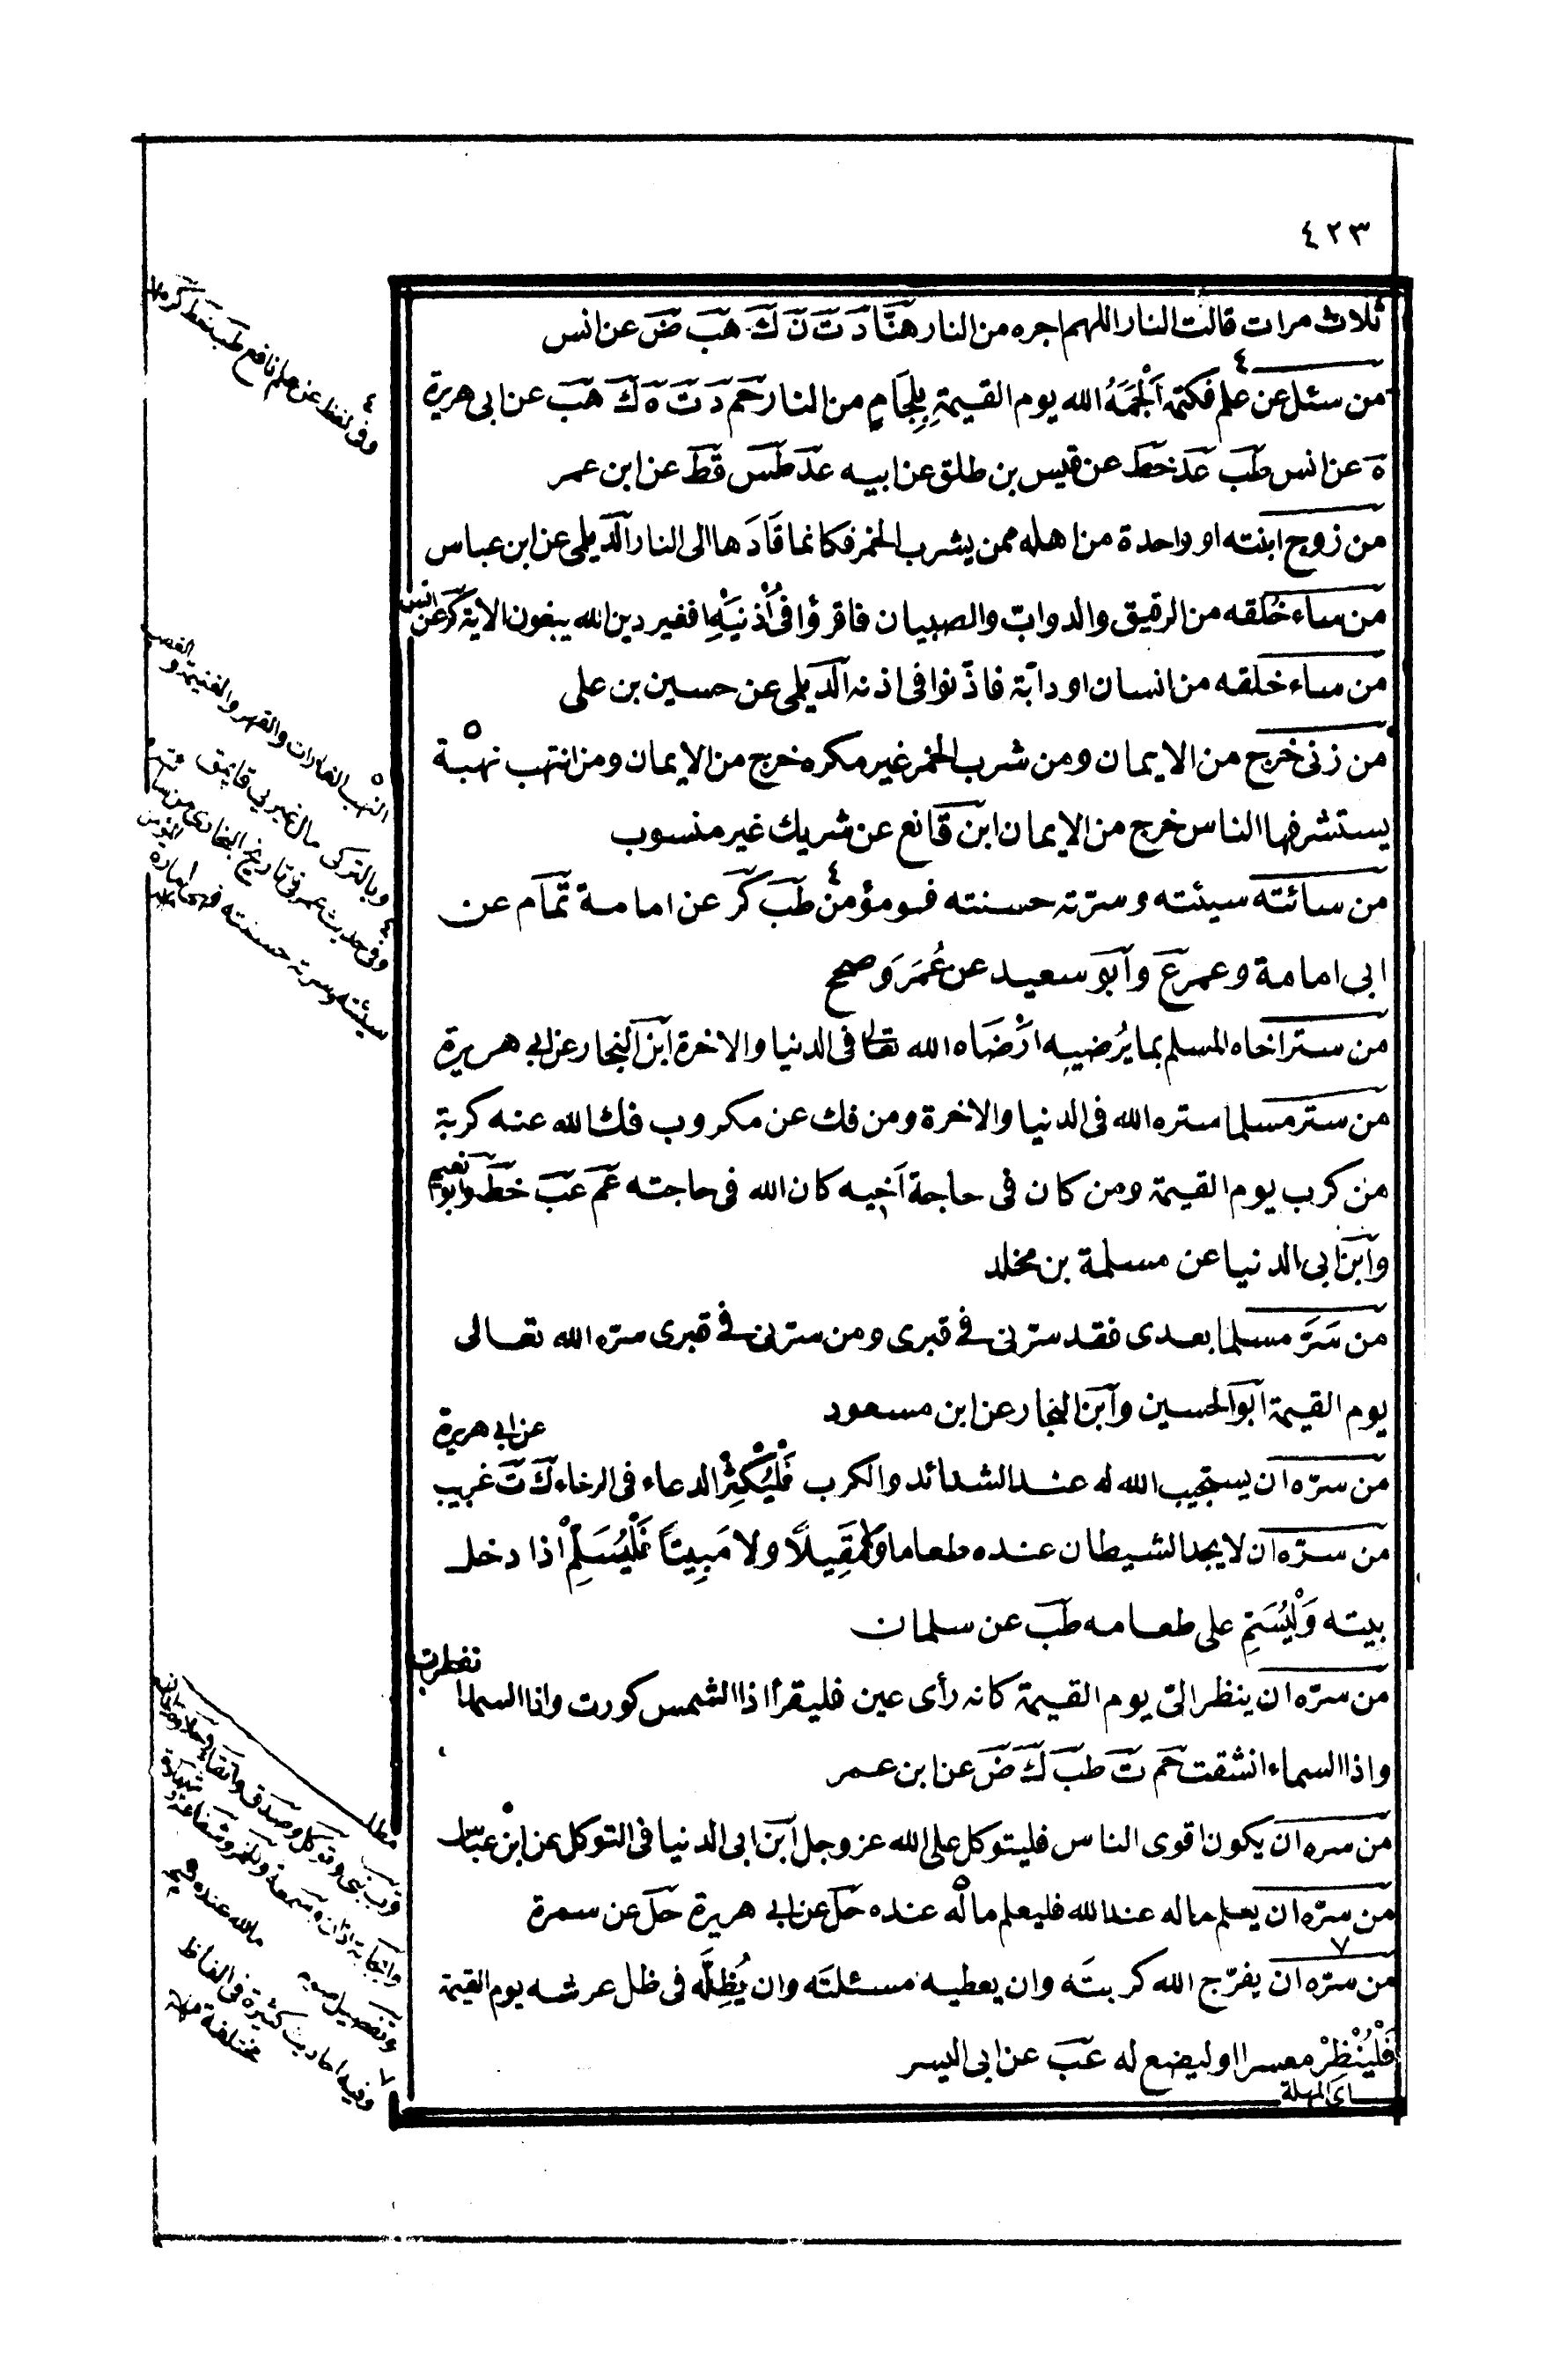 ٤٢٣
ثلاث مرات قالت النار اللهم اجره من النار هنّاد ت ن ك هب ض عن انس
من سئل عن علم فكتمه اَلْجَمَهُ الله يوم القيمة بِلِجَامٍ من النار حم د ت ه ك هب عن ابى هريرة
ه عن انس طب عد خط عن قيس بن طلق عن ابيه عد طس قط عن ابن عمر
من زوج ابنته او واحدة من اهله ممن يشرب الخمر فكانما قَادَها الى النار الديلمى عن ابن عباس
من ساء خُلقه من الرقيق والدوابّ والصبيان فاقرؤا فى اُذْنَيْهِ افغير دين الله يبغون الاية كر عن انس
من ساء خلقه من انسان او دابّة فاذّنوا فى اذنه الديلمى عن حسين بن على
من زنى خرج من الايمان ومن شرب الخمر غير مكره خرج من الايمان ومن انتهب نهبة
يستشرفها الناس خرج من الايمان ابن قانع عن شريك غير منسوب
من سائته سيئته وسرّته حسنته فهو مؤمن طب كر عن امامة تمّام عن
ابى امامة وعمر ع وابو سعيد عن عُمَرَ وصحح
من ستر اخاه المسلم بما يُرضيه ارْضَاه الله تعالى فى الدنيا والاخرة ابن النجار عن ابى هريرة
من ستر مسلما ستره الله فى الدنيا والاخرة ومن فك عن مكروب فك الله عنه كربة
من كرب يوم القيمة ومن كان فى حاجة اخيه كان الله فى حاجته عم عب خط وابو نعيم
وابن ابى الدنيا عن مسلمة بن مخلد
من سَرَّ مسلما بعدى فقد سرنى فى قبرى ومن سرنى فى قبرى سرّه الله تعالى
يوم القيمة ابو الحسين وابن النجار عن ابن مسعود
من سرّه ان يستجيب الله له عند الشدائد والكرب فَلْيُكْثِرْ الدعاء فى الرخاء ك ت غريب عن ابى هريرة
من سرّه ان لا يجد الشيطان عنده طعاما ولا مَقِيلًا ولا مَبِيتاً فَلْيُسَلِّمْ اذا دخل
بيته وَلْيُسَمِّ على طعامه طب عن سلمان
من سرّه ان ينظر الىّ يوم القيمة كانه رأى عين فليقرأ اذا الشمس كورت واذا السماء انفطرت
واذا السماء انشقت حم ت طب ك ض عن ابن عمر
من سره ان يكون اقوى الناس فليتوكل على الله عز وجل ابن ابى الدنيا فى التوكل عن ابن عبّاس
من سرّه ان يعلم ما له عند الله فليعلم ما لله عنده حل عن ابى هريرة حل عن سمرة
من سرّه ان يفرّج الله كربتَه وان يعطيه مسئلتَه وان يُظِلَّه فى ظل عرشه يوم القيمة
فَلْيُنْظِرْ معسرا او ليضع له عب عن ابى اليسر
٤ وفى لفظ عن علم نافع طب خط كر
٥ النهب الغارات والقهر والغنيمة و
٤ وفى حديث عمر فى تاريخ البخارى من ساءته
سيئته وسرته حسنته فهى امارة المؤمن
مطلب
٧ وفيه احاديث كثيرة فى الفاظ
مختلفة